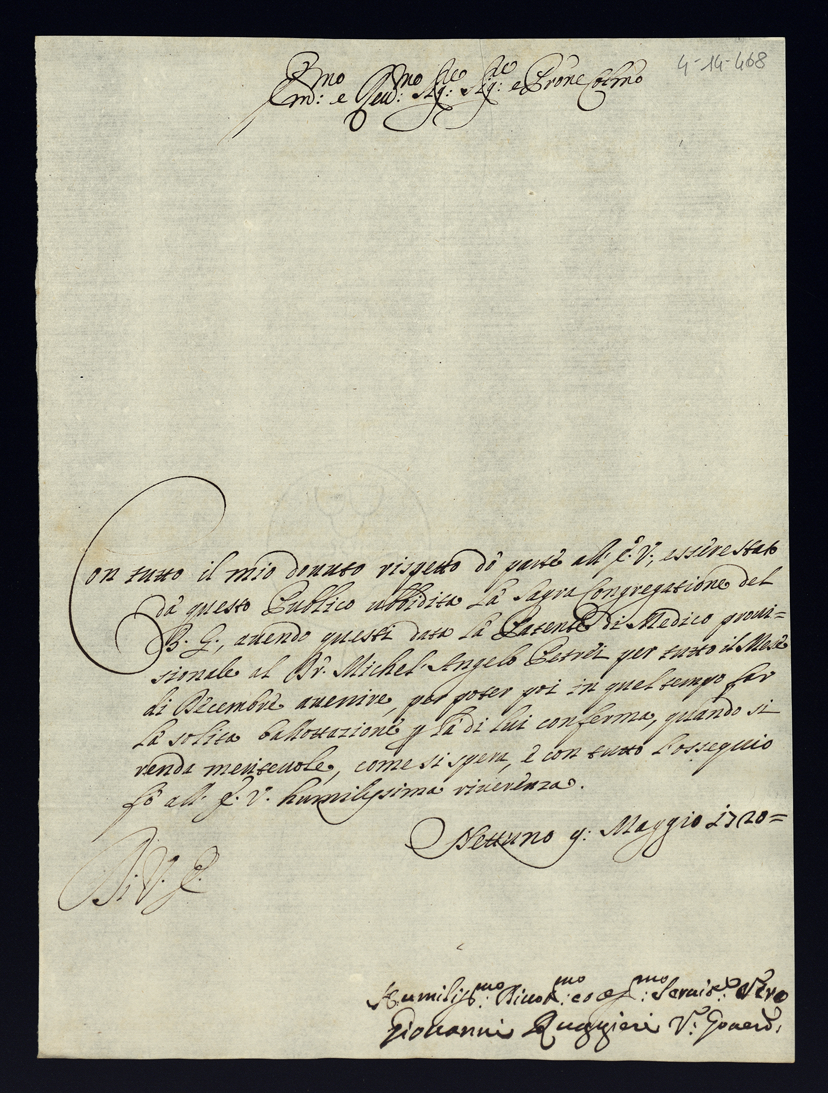 4-14-468
Em̃o: e Reu:mo Sig: Sig: e Prone Colmo
Con tutto il mio douuto rispetto dò parte all' E. V., essere stato
dà questo Publico ubbidita la Sagra Congregatione del
B. G., auendo questi data la Patente di Medico proui=
sionale al Dr. Michel' Angelo Petrei per tutto il Mese
di Decembre auenire, per poter poi in quel tempo far
la solita ballottazione p la di lui conferma, quando si
renda meriteuole, come si spera, è con tutto l'ossequio
fò all' E. V. humilissima riuerenza.
Nettuno 9: Maggio 1720=
Di V. E.
Humiliss:mo Diuot:mo ed :mo Seruit:e Vero
Giouanni Ruggieri V. Gouer.